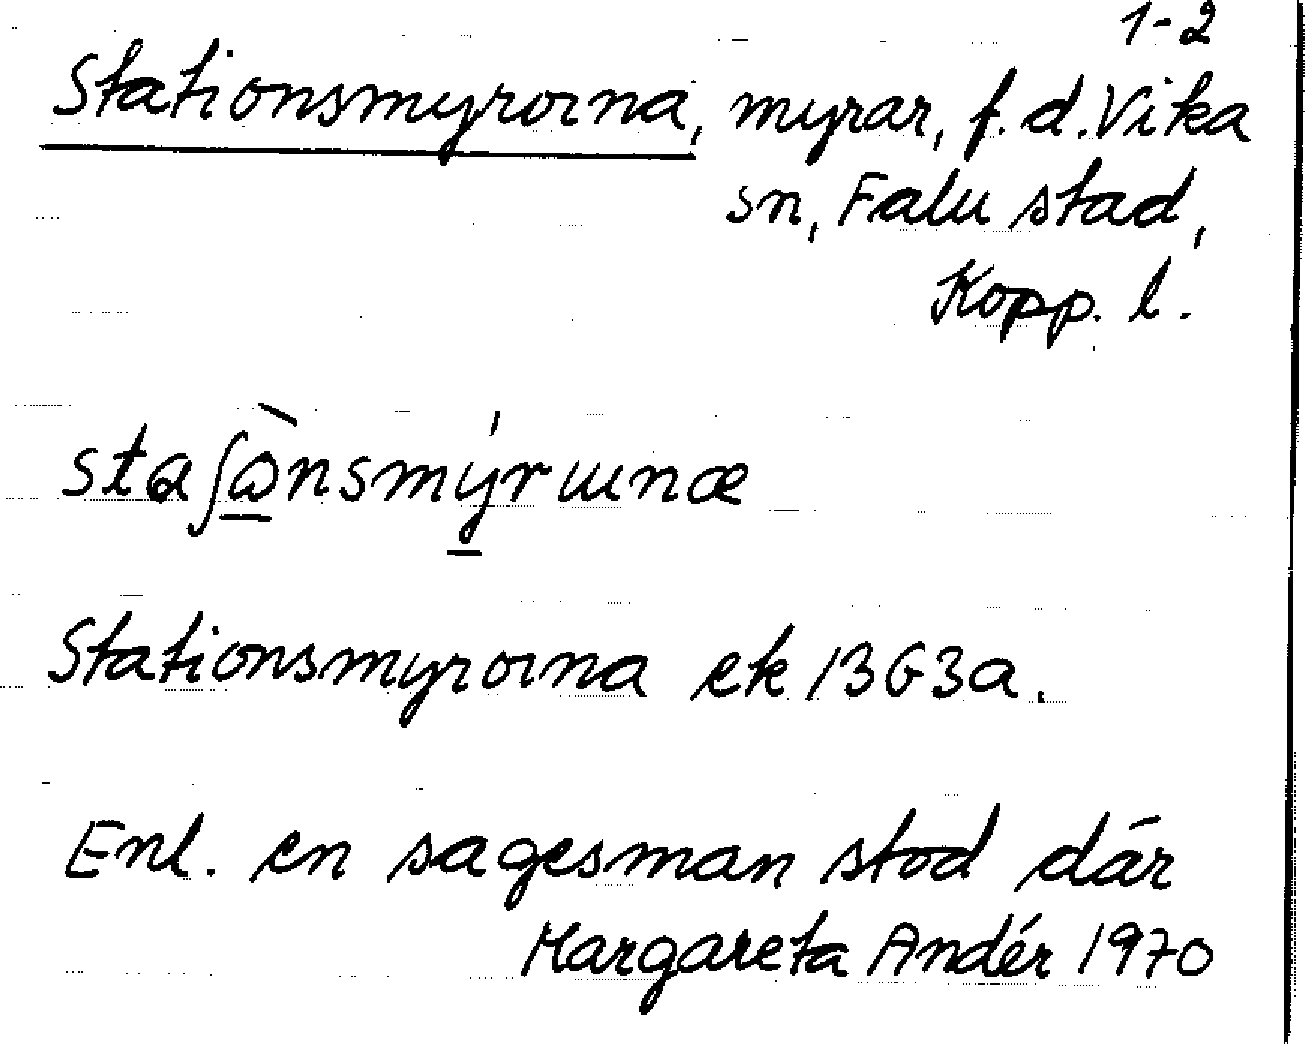 1-2
Stationsmyrorna, myrar, f.d. Vika
sn, Falu stad,
Kopp. l.
staʃὼ̲nsmý̲rɯnæ
Stationsmyrorna ek 13G3a.
Enl. en sagesman stod där
Margareta Andér 1970